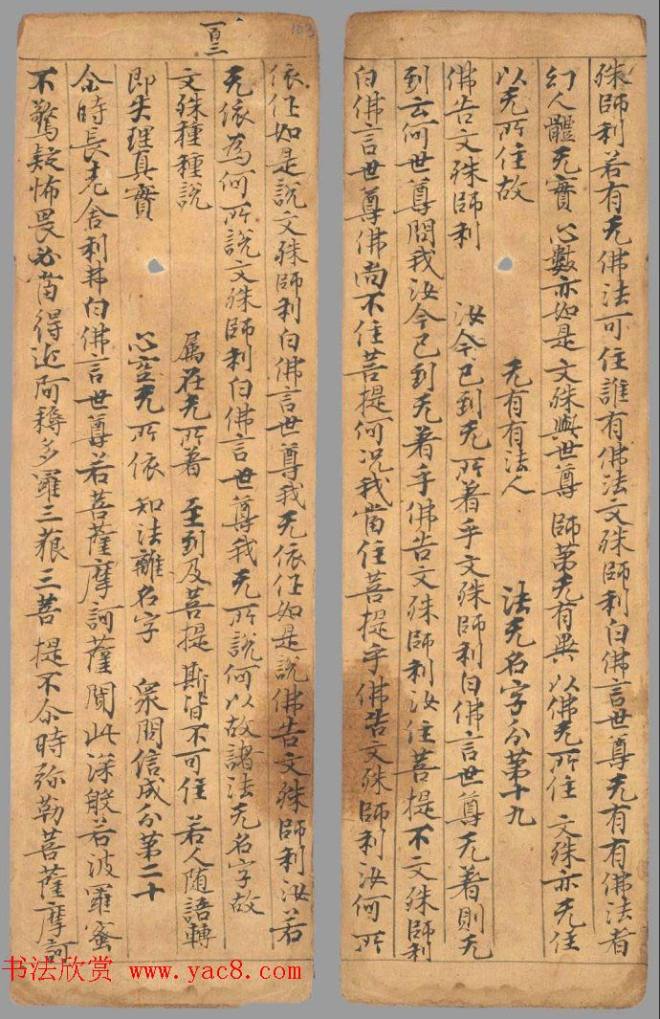 殊師利若有无佛法可住誰有佛法文殊師利白佛言世尊无有有佛法者
幻人體无實 心數亦如是 文殊與世尊 師弟无有異 以佛无所住 文殊亦无住
以无所住故 无有有法人 法无名字分第十九
佛告文殊師利 汝今已到无所著乎文殊師利白佛言世尊无著則无
到云何世尊問我汝今已到无着乎佛告文殊師利汝住菩提不文殊師利
白佛言世尊佛尚不住菩提何況我當住菩提乎佛告文殊師利汝何所
百三
103
依作如是說文殊師利白佛言世尊我无依作如是說佛告文殊師利汝若
无依為何所說文殊師利白佛言世尊我无所說何以故諸法无名字故
文殊種種說 屬在无所著 至到及菩提 斯皆不可住 若人随語轉
即失理真實 心空无所依 知法離名字 衆闻信成分第二十
尒時長老舍利弗白佛言世尊若菩薩摩訶薩聞此深般若波羅蜜
不驚疑怖畏必當得近阿耨多羅三藐三菩提不尒時弥勒菩薩摩訶
书法欣赏 www.yac8.com